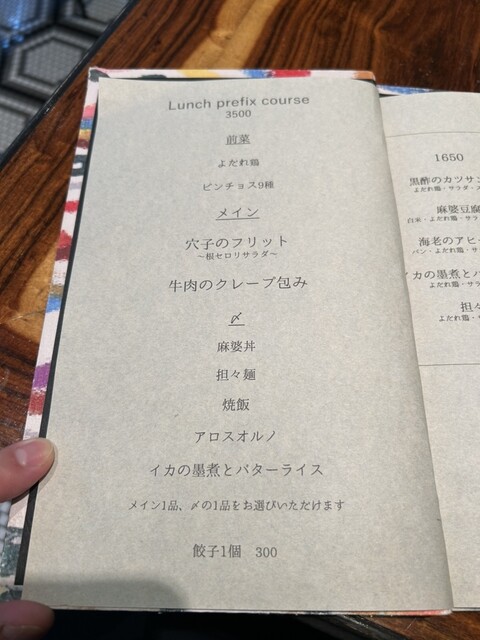 Lunch prefix course
3500
前菜
よだれ鶏
ピンチョス9種
メイン
穴子のフリット
〜根セロリサラダ〜
牛肉のクレープ包み
〆
麻婆丼
担々麺
焼飯
アロスオルノ
イカの墨煮とバターライス
メイン1品、〆の1品をお選びいただけます
餃子1個 300
1650
黒酢のカツサン
よだれ鶏・サラダ・ス
麻婆豆腐
白米・よだれ鶏・サラ
海老のアヒー
パン・よだれ鶏・サラ
イカの墨煮とバ
よだれ鶏・サラ
担々
よだれ鶏・サ